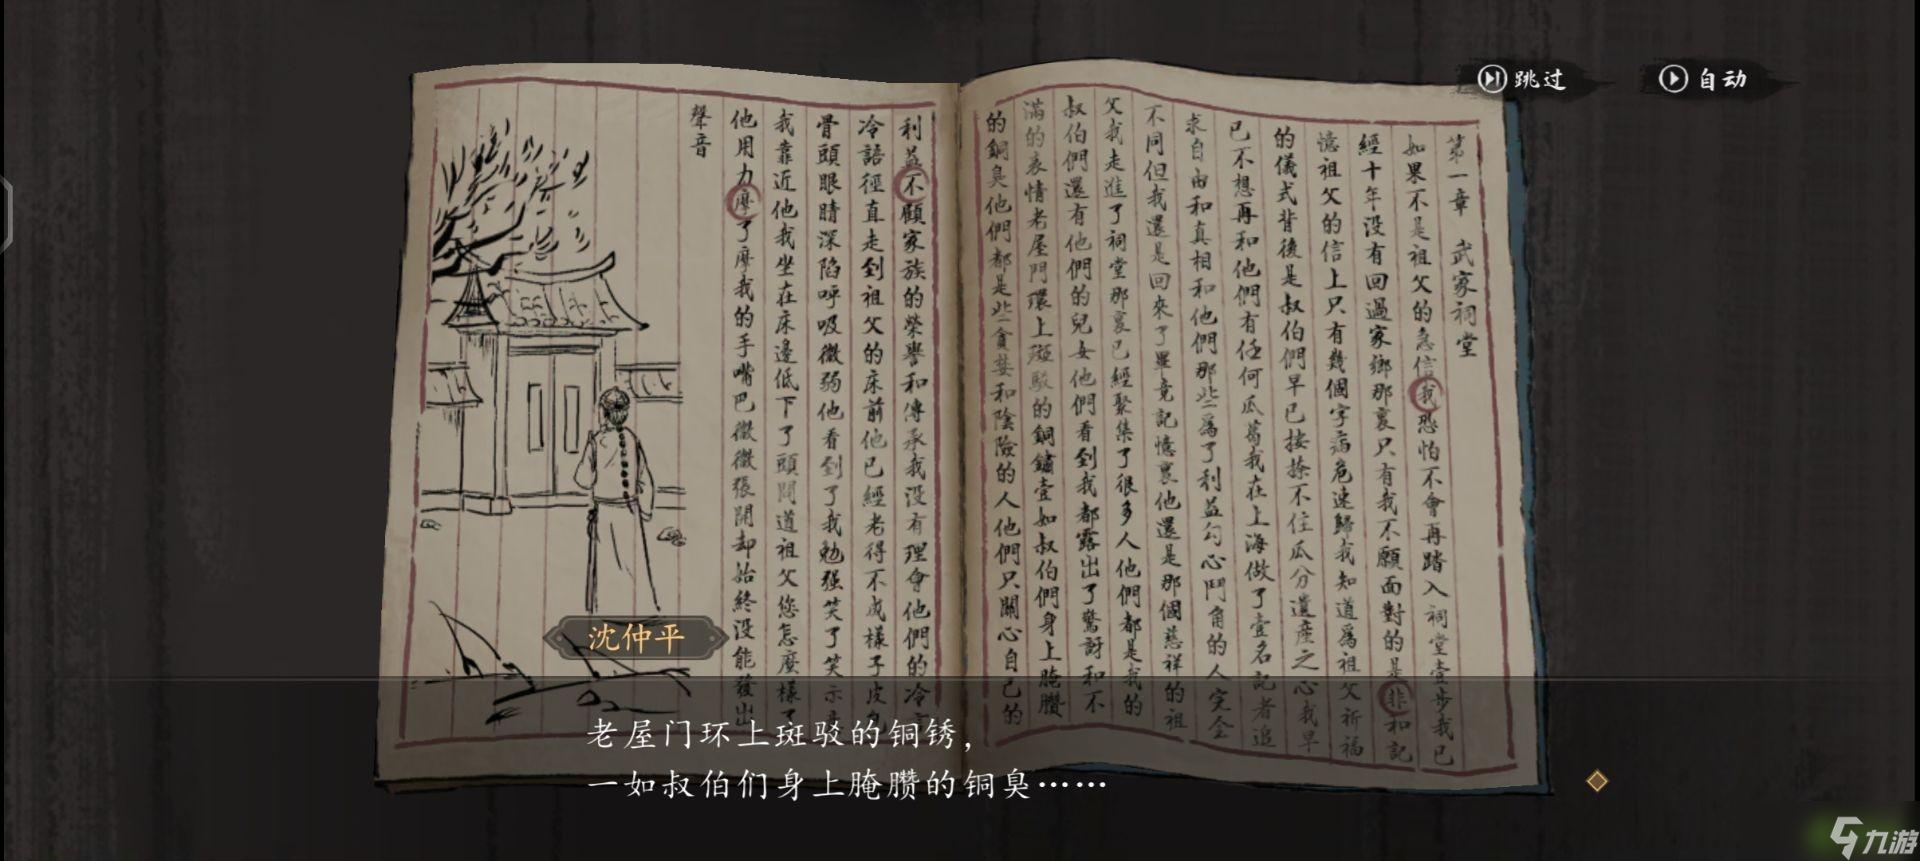 跳过
自动
第一章 武家祠堂
如果不是祖父的急信我恐怕不會再踏入祠堂壹步我已
經十年没有回過家鄉那裏只有我不願面對的是非和記
憶祖父的信上只有幾個字病危速歸我知道爲祖父祈福
的儀式背後是叔伯們早已按捺不住瓜分遺産之心我早
已不想再和他們有任何瓜葛我在上海做了壹名記者追
求自由和真相和他們那些爲了利益勾心鬥角的人完全
不同但我還是回來了畢竟記憶裏他還是那個慈祥的祖
父我走進了祠堂那裏已經聚集了很多人他們都是我的
叔伯們還有他們的兒女他們看到我都露出了驚訝和不
滿的表情老屋門環上斑駁的銅鏽壹如叔伯們身上腌臢
的銅臭他們都是些貪婪和陰險的人他們只關心自己的
利益不顧家族的榮譽和傳承我没有理會他們的冷言
冷語徑直走到祖父的床前他已經老得不成樣子皮包
骨頭眼睛深陷呼吸微弱他看到了我勉强笑了笑示意
我靠近他我坐在床邊低下了頭問道祖父您怎麽樣了
他用力摩了摩我的手嘴巴微微張開却始終没能發出
聲音
沈仲平
老屋门环上斑驳的铜锈，
一如叔伯们身上腌臜的铜臭……
九游